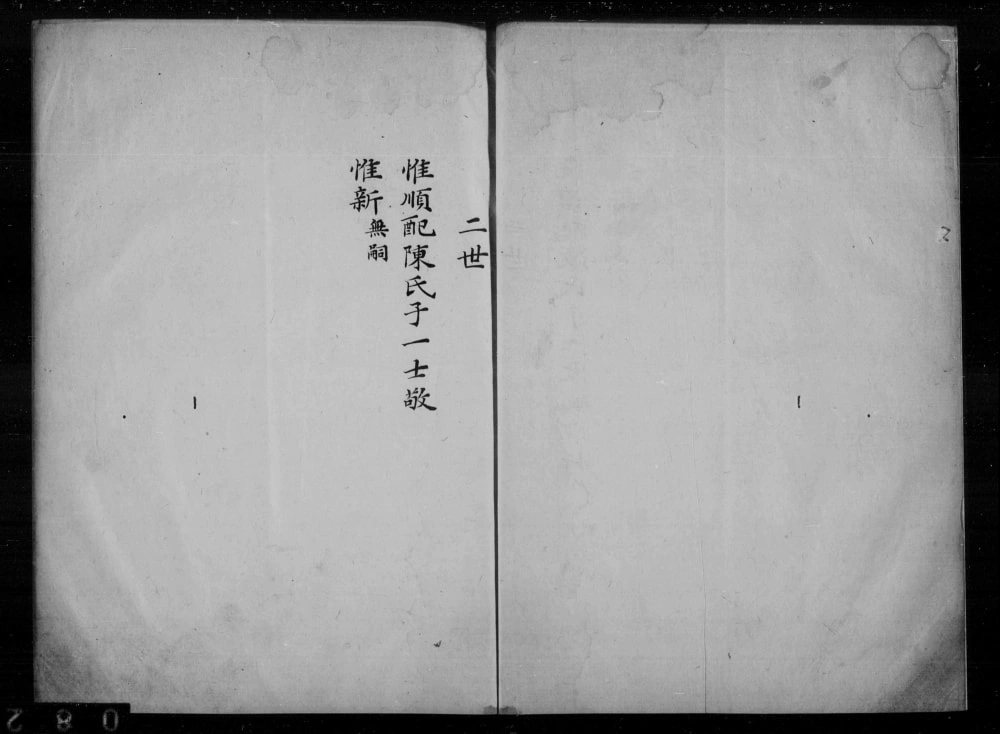 二世
惟順配陳氏子一士敬
惟新無嗣